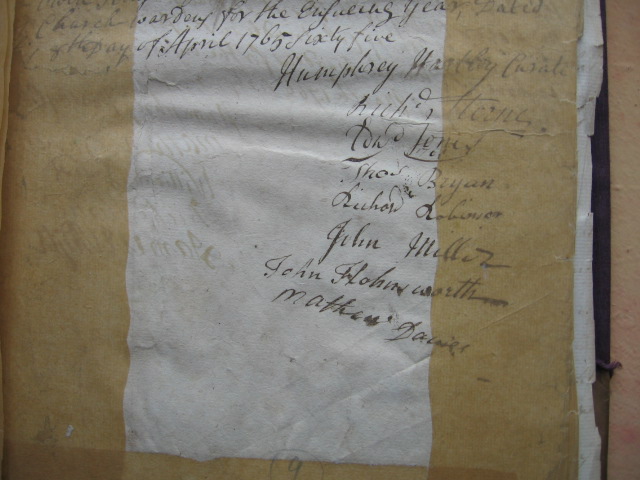 Church wardens for the Ensueing Year, Dated
day of April 1765 Sixty five
Humphrey Hartley Curate
Richd
Edwd Jones
Thos Bryan
Richard Robinson
John Miller
John Holdnsworth
Mathew Davies
9